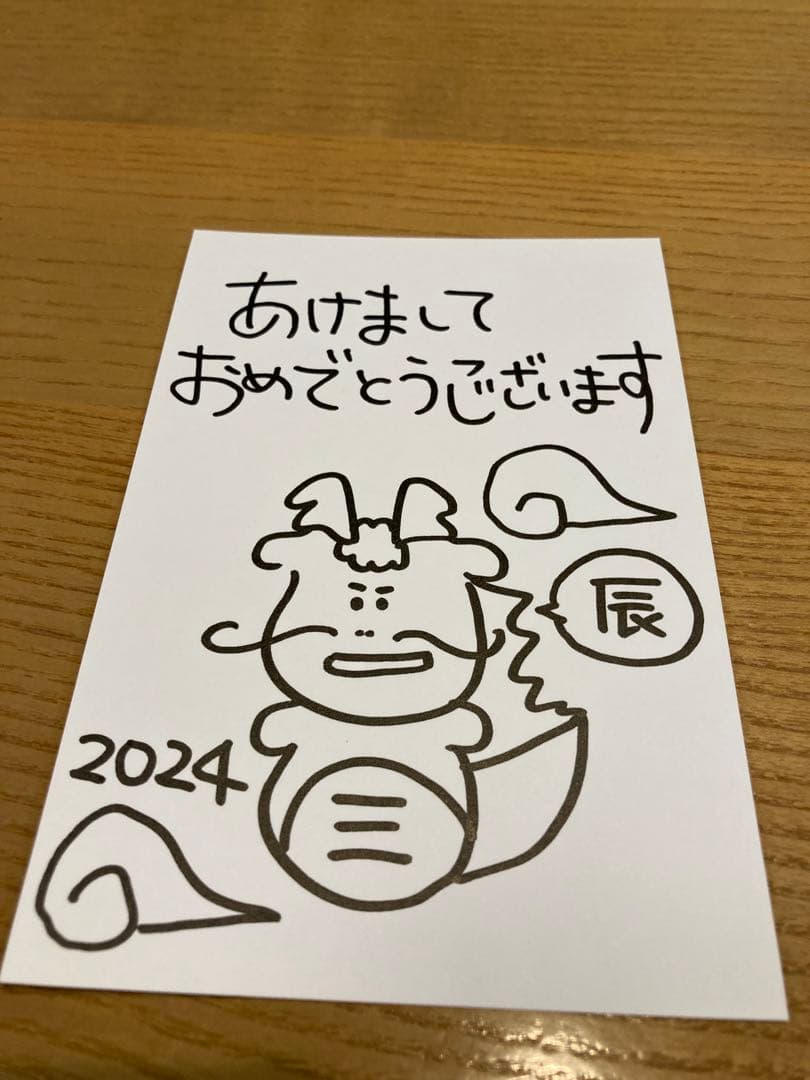 あけまして
おめでとうございます
辰
2024